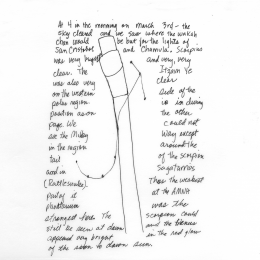 At 4 in the morning on March 3rd - the
sky cleared and we saw where the
would be but for the lights of
San Cristobal and Chamula, Scorpius
was very bright and very, very
clear. The
was also very clear
on the western side of the
polar region in during
position as on the other
page. We could not
see the Milky Way except
in the region around the
tail of the Scorpion
and in Sagittarius
(Rattlesnake). Thus the weakest
part of a at the AMNH
planetarium was the
strongest here. The Scorpion could
still be seen at dawn and the
appeared very bright in the red glow
of the dawn